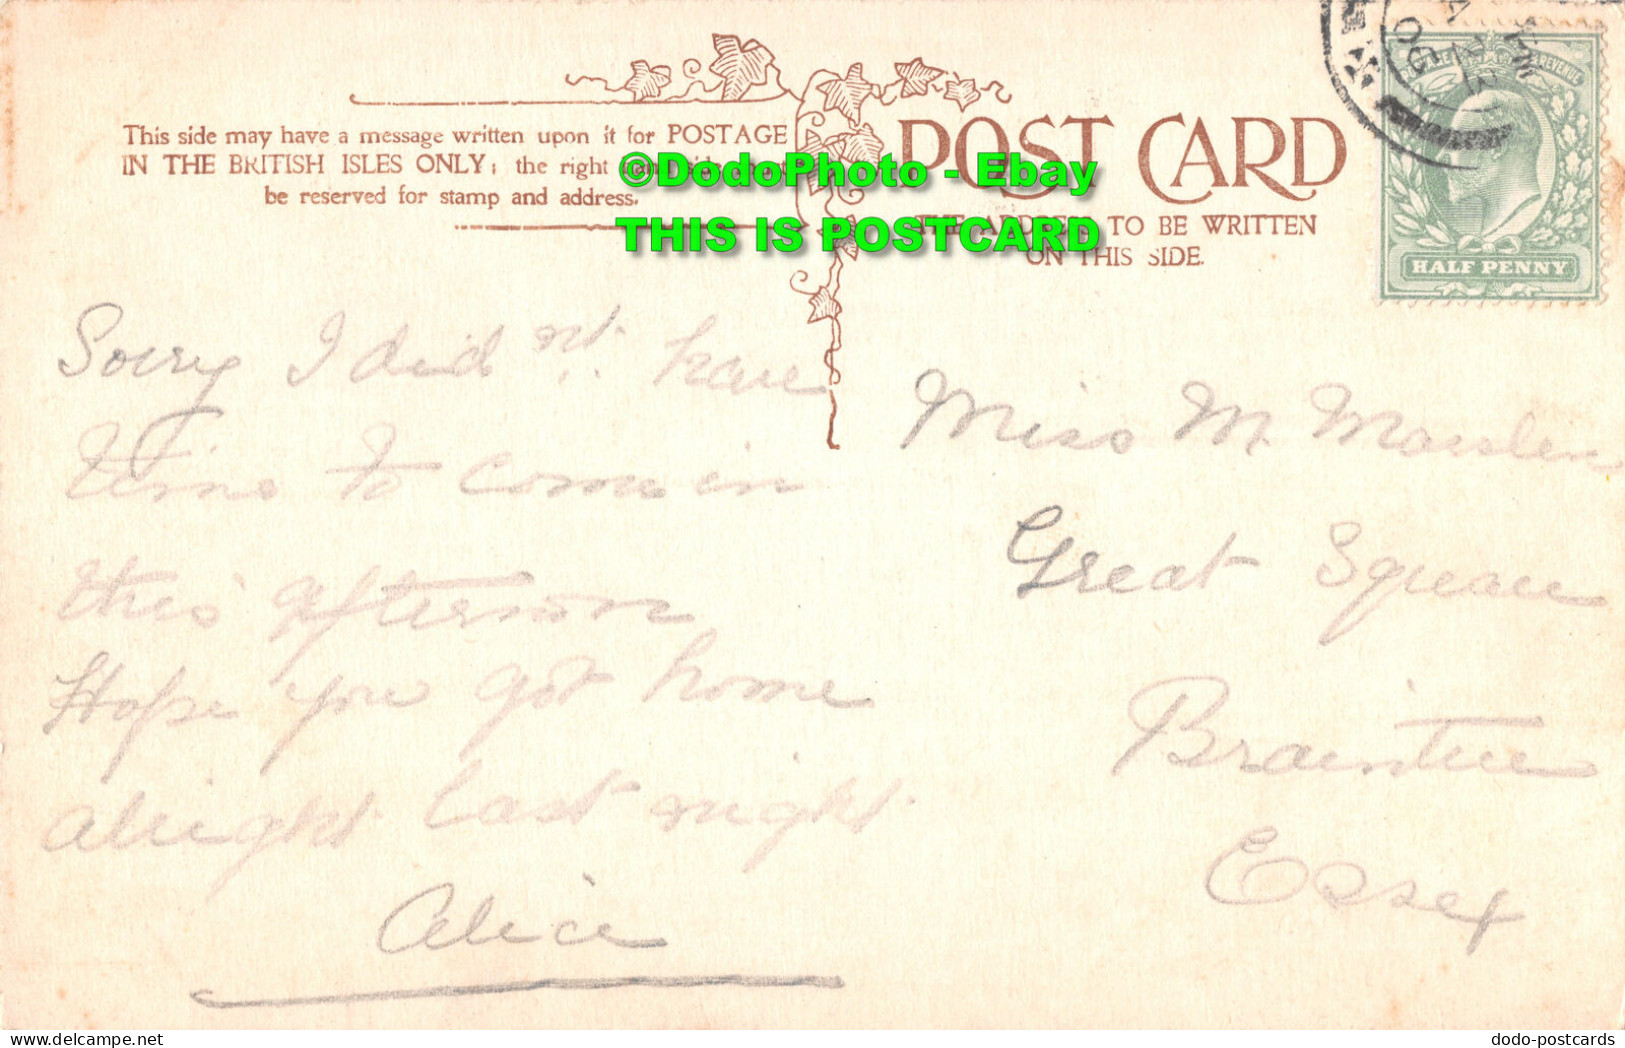 This side may have a message written upon it for POSTAGE
IN THE BRITISH ISLES ONLY; the right hand side must
be reserved for stamp and address.
POST CARD
THE ADDRESS TO BE WRITTEN
ON THIS SIDE.
REVENUE
HALF PENNY
©DodoPhoto - Ebay
THIS IS POSTCARD
Sorry I did not have
time to come in
this afternoon
Hope you got home
alright last night.
Alice
Miss M. Marsden
Great Square
Braintree
Essex
dodo-postcards